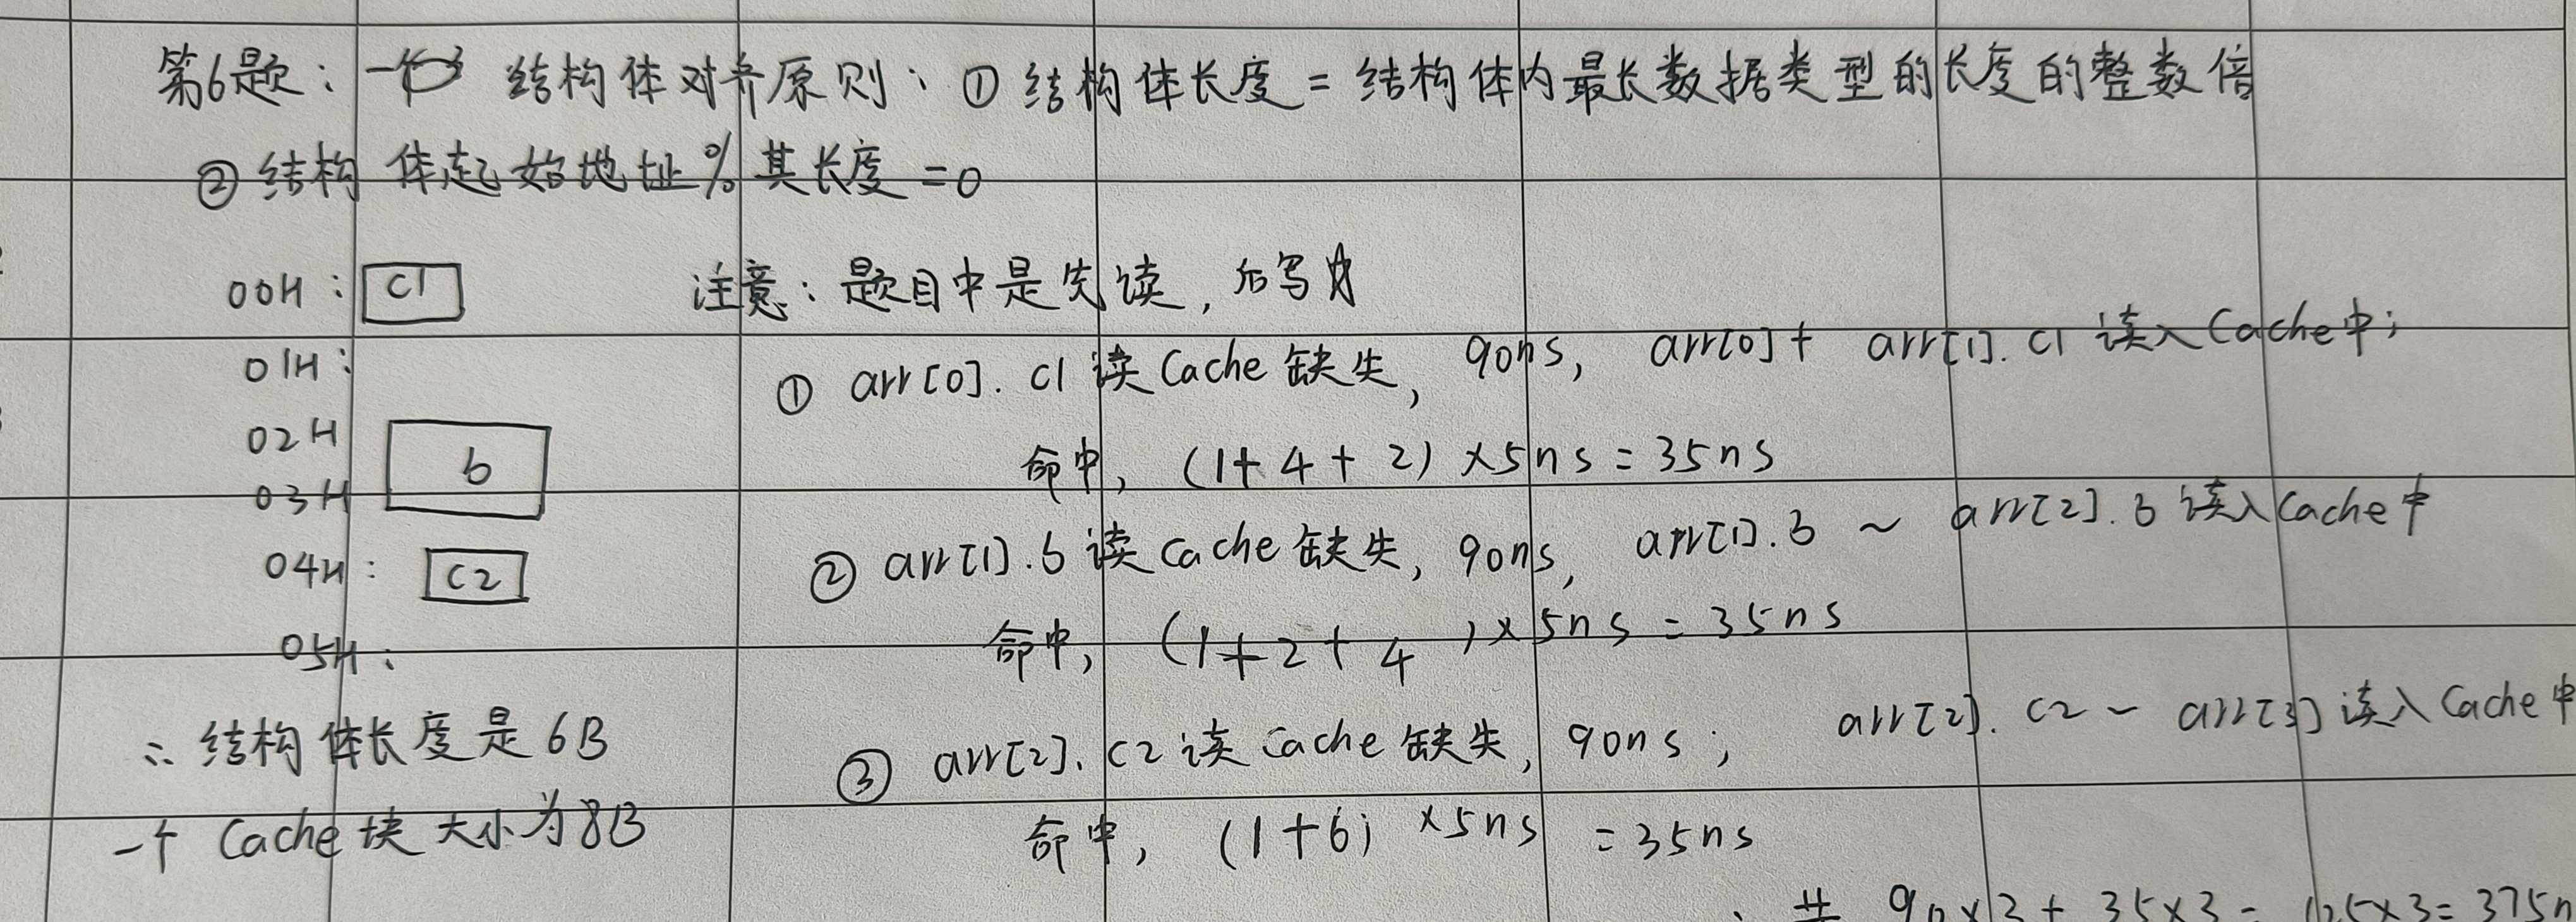 第6题： 结构体对齐原则：① 结构体长度 = 结构体内最长数据类型的长度的整数倍
② 结构体起始地址 % 其长度 = 0
00H： c1
注意：题目中是先读，后写
01H：
① arr[0]. c1 读 Cache 缺失， 90ns， arr[0] + arr[1]. c1 读入 Cache 中；
02H
03H
b
命中， (1+4+2) ×5ns = 35ns
② arr[1].b 读 Cache 缺失， 90ns， arr[1].b ~ arr[2].b 读入 Cache 中
04H： c2
命中， (1+2+4) ×5ns = 35ns
05H：
∴ 结构体长度是 6B
③ arr[2]. c2 读 Cache 缺失， 90ns； arr[2]. c2 ~ arr[3] 读入 Cache 中
一个 Cache 块大小为 8B
命中， (1+6) ×5ns = 35ns
共 90×3 + 35×3 = 125×3 = 375n